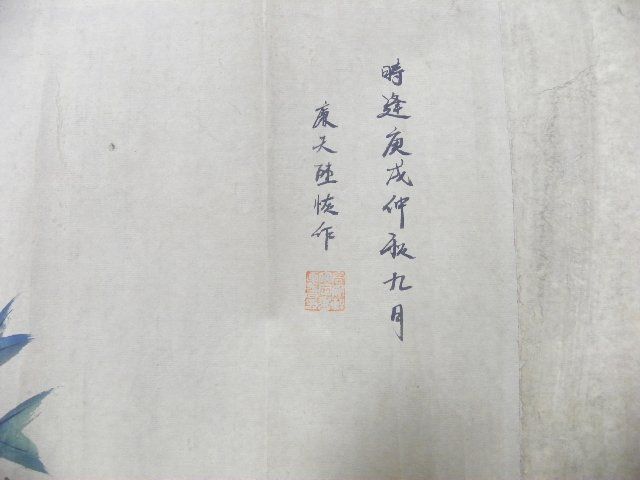 時逢庚戌仲秋九月
廉夫陸恢作